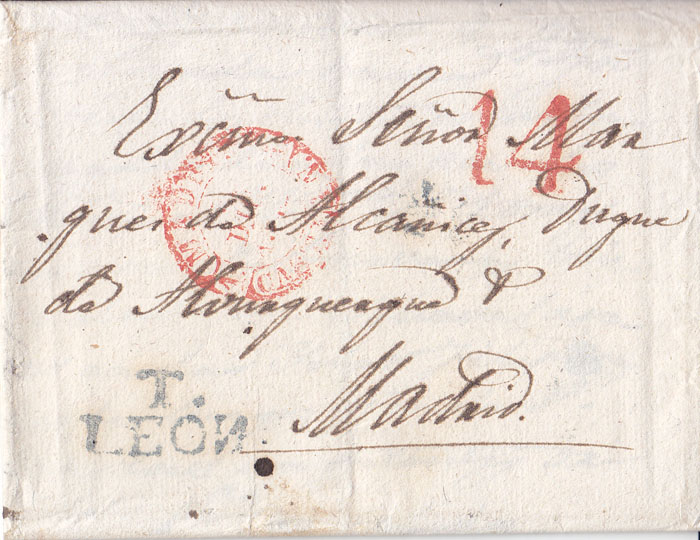 Exc̃mo Señor Mar
14
ques de Alcañices, Duque
de Alburquerque &
Madrid.
T.
LEON